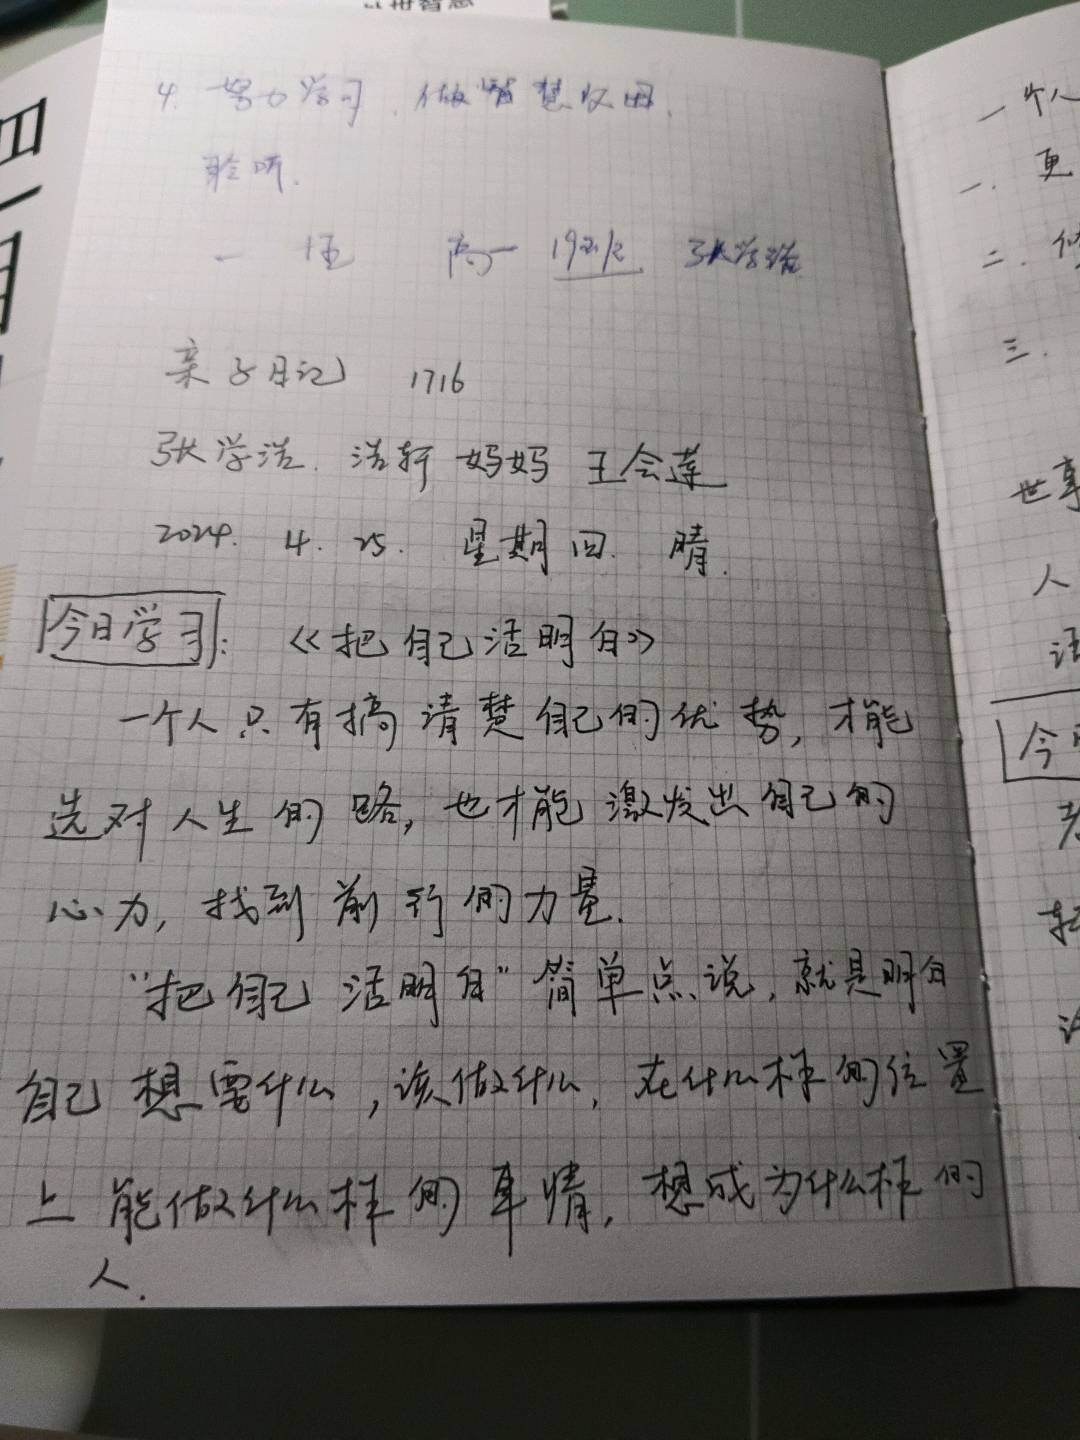 4. 努力学习, 做智慧父母.
聆听.
一 悟 高一 19班 张学浩
亲子日记 1716
张学浩. 浩轩 妈妈 王会莲
2024. 4. 25. 星期四. 晴.
今日学习: 《把自己活明白》
一个人只有搞清楚自己的优势, 才能
选对人生的路, 也才能激发出自己的
心力, 找到前行的力量.
"把自己活明白"简单点说, 就是明白
自己想要什么, 该做什么, 在什么样的位置
上能做什么样的事情, 想成为什么样的
人.
一个人
一. 更
二. 修
三.
世事
人
活
今